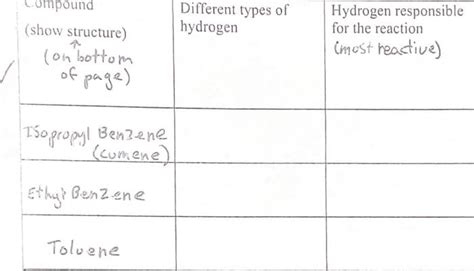 Compound
(show structure)
(on bottom
of page)
Different types of
hydrogen
Hydrogen responsible
for the reaction
(most reactive)
Isopropyl Benzene
(cumene)
Ethyl Benzene
Toluene